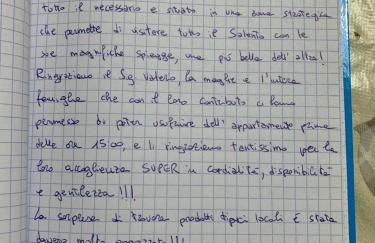 tutto il necessario e situato in una zona strategica
che permette di visitare tutto il Salento con le
sue magnifiche spiagge, una più bella dell'altra!
Ringraziamo il Sig. Valerio, la moglie e l'intera
famiglia che con il loro contributo ci hanno
permesso di poter usufruire dell'appartamento prima
delle ore 15:00, e li ringraziamo tantissimo per la
loro accoglienza SUPER in cordialità, disponibilità
e gentilezza!!!
La sorpresa di trovare prodotti tipici locali È stata
davvero molto apprezzata!!!